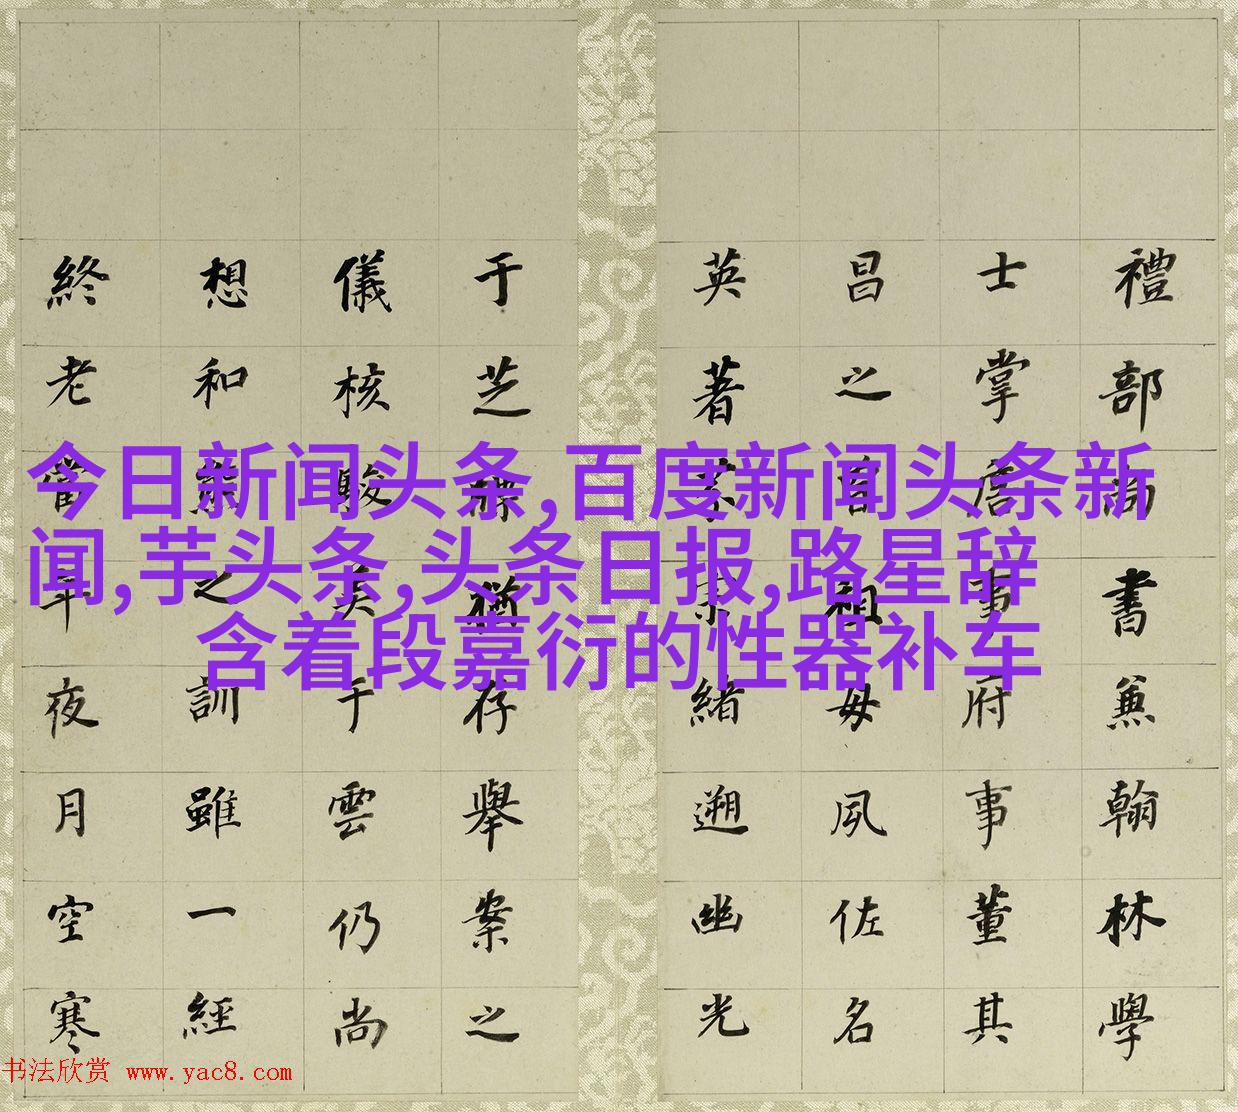 今日新闻头条,百度新闻头条新
闻,芋头条,头条日报,路星辞
含着段嘉衍的性器补车
禮部尚書兼翰林學
士掌詹事府事董其
昌之祖母夙佐名
英著緒遡幽光
于芝猶存舉案之
儀核駿美于雲仍尚
想和之訓雖一經
終老當年夜月空寒
书法欣赏 www.yac8.com